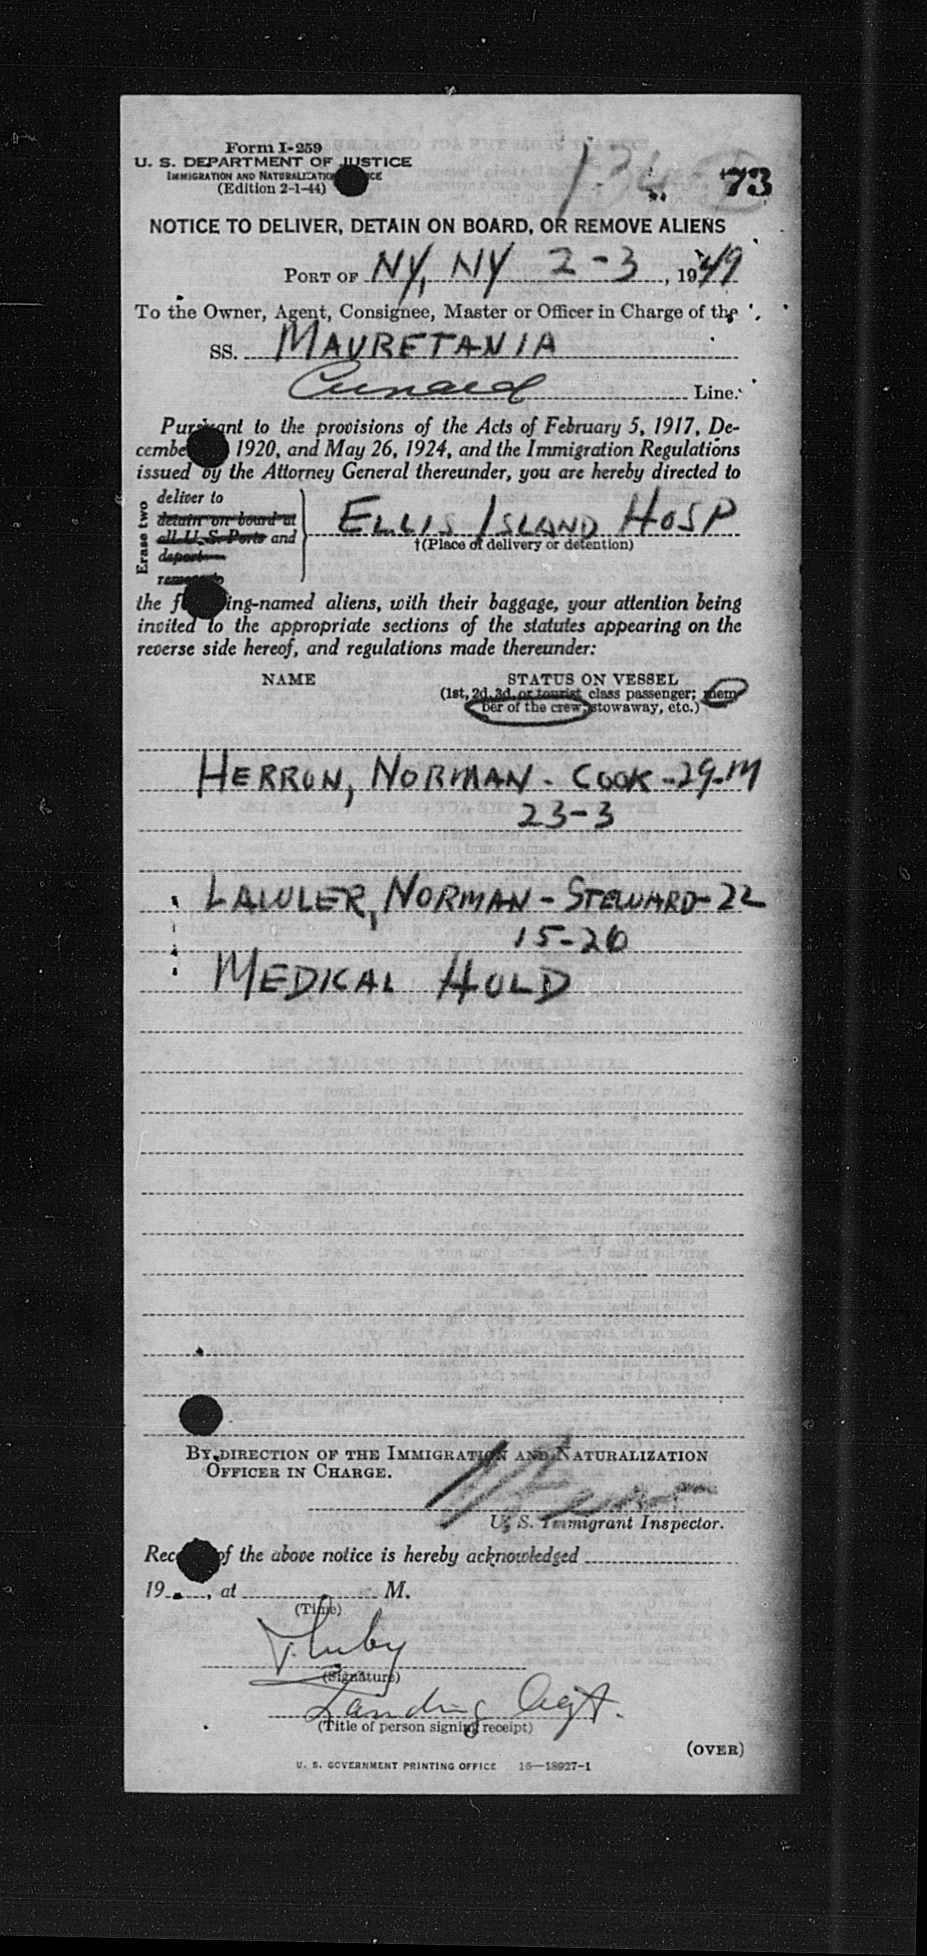 Form I-259
U. S. DEPARTMENT OF JUSTICE
IMMIGRATION AND NATURALIZATION
(Edition 2-1-44)
73
NOTICE TO DELIVER, DETAIN ON BOARD, OR REMOVE ALIENS
PORT OF NY, NY 2-3, 1949
To the Owner, Agent, Consignee, Master or Officer in Charge of the
SS. MAURETANIA
Cunard Line.
Pursuant to the provisions of the Acts of February 5, 1917, De-
cember 1920, and May 26, 1924, and the Immigration Regulations
issued by the Attorney General thereunder, you are hereby directed to
Erase two
deliver to
detain on board at
all U. S. Ports and
deport
remove to
ELLIS ISLAND HOSP
†(Place of delivery or detention)
the following-named aliens, with their baggage, your attention being
invited to the appropriate sections of the statutes appearing on the
reverse side hereof, and regulations made thereunder:
NAME STATUS ON VESSEL
(1st, 2d, 3d, or tourist class passenger; mem-
ber of the crew; stowaway, etc.)
HERRON, NORMAN - COOK - 29-M
23-3
LAWLER, NORMAN - STEWARD - 22
15-26
MEDICAL HOLD
BY DIRECTION OF THE IMMIGRATION AND NATURALIZATION
OFFICER IN CHARGE.
U. S. Immigrant Inspector.
Receipt of the above notice is hereby acknowledged
19, at M.
(Time)
(Signature)
Landing Agt.
(Title of person signing receipt)
(OVER)
U. S. GOVERNMENT PRINTING OFFICE 16—18927-1